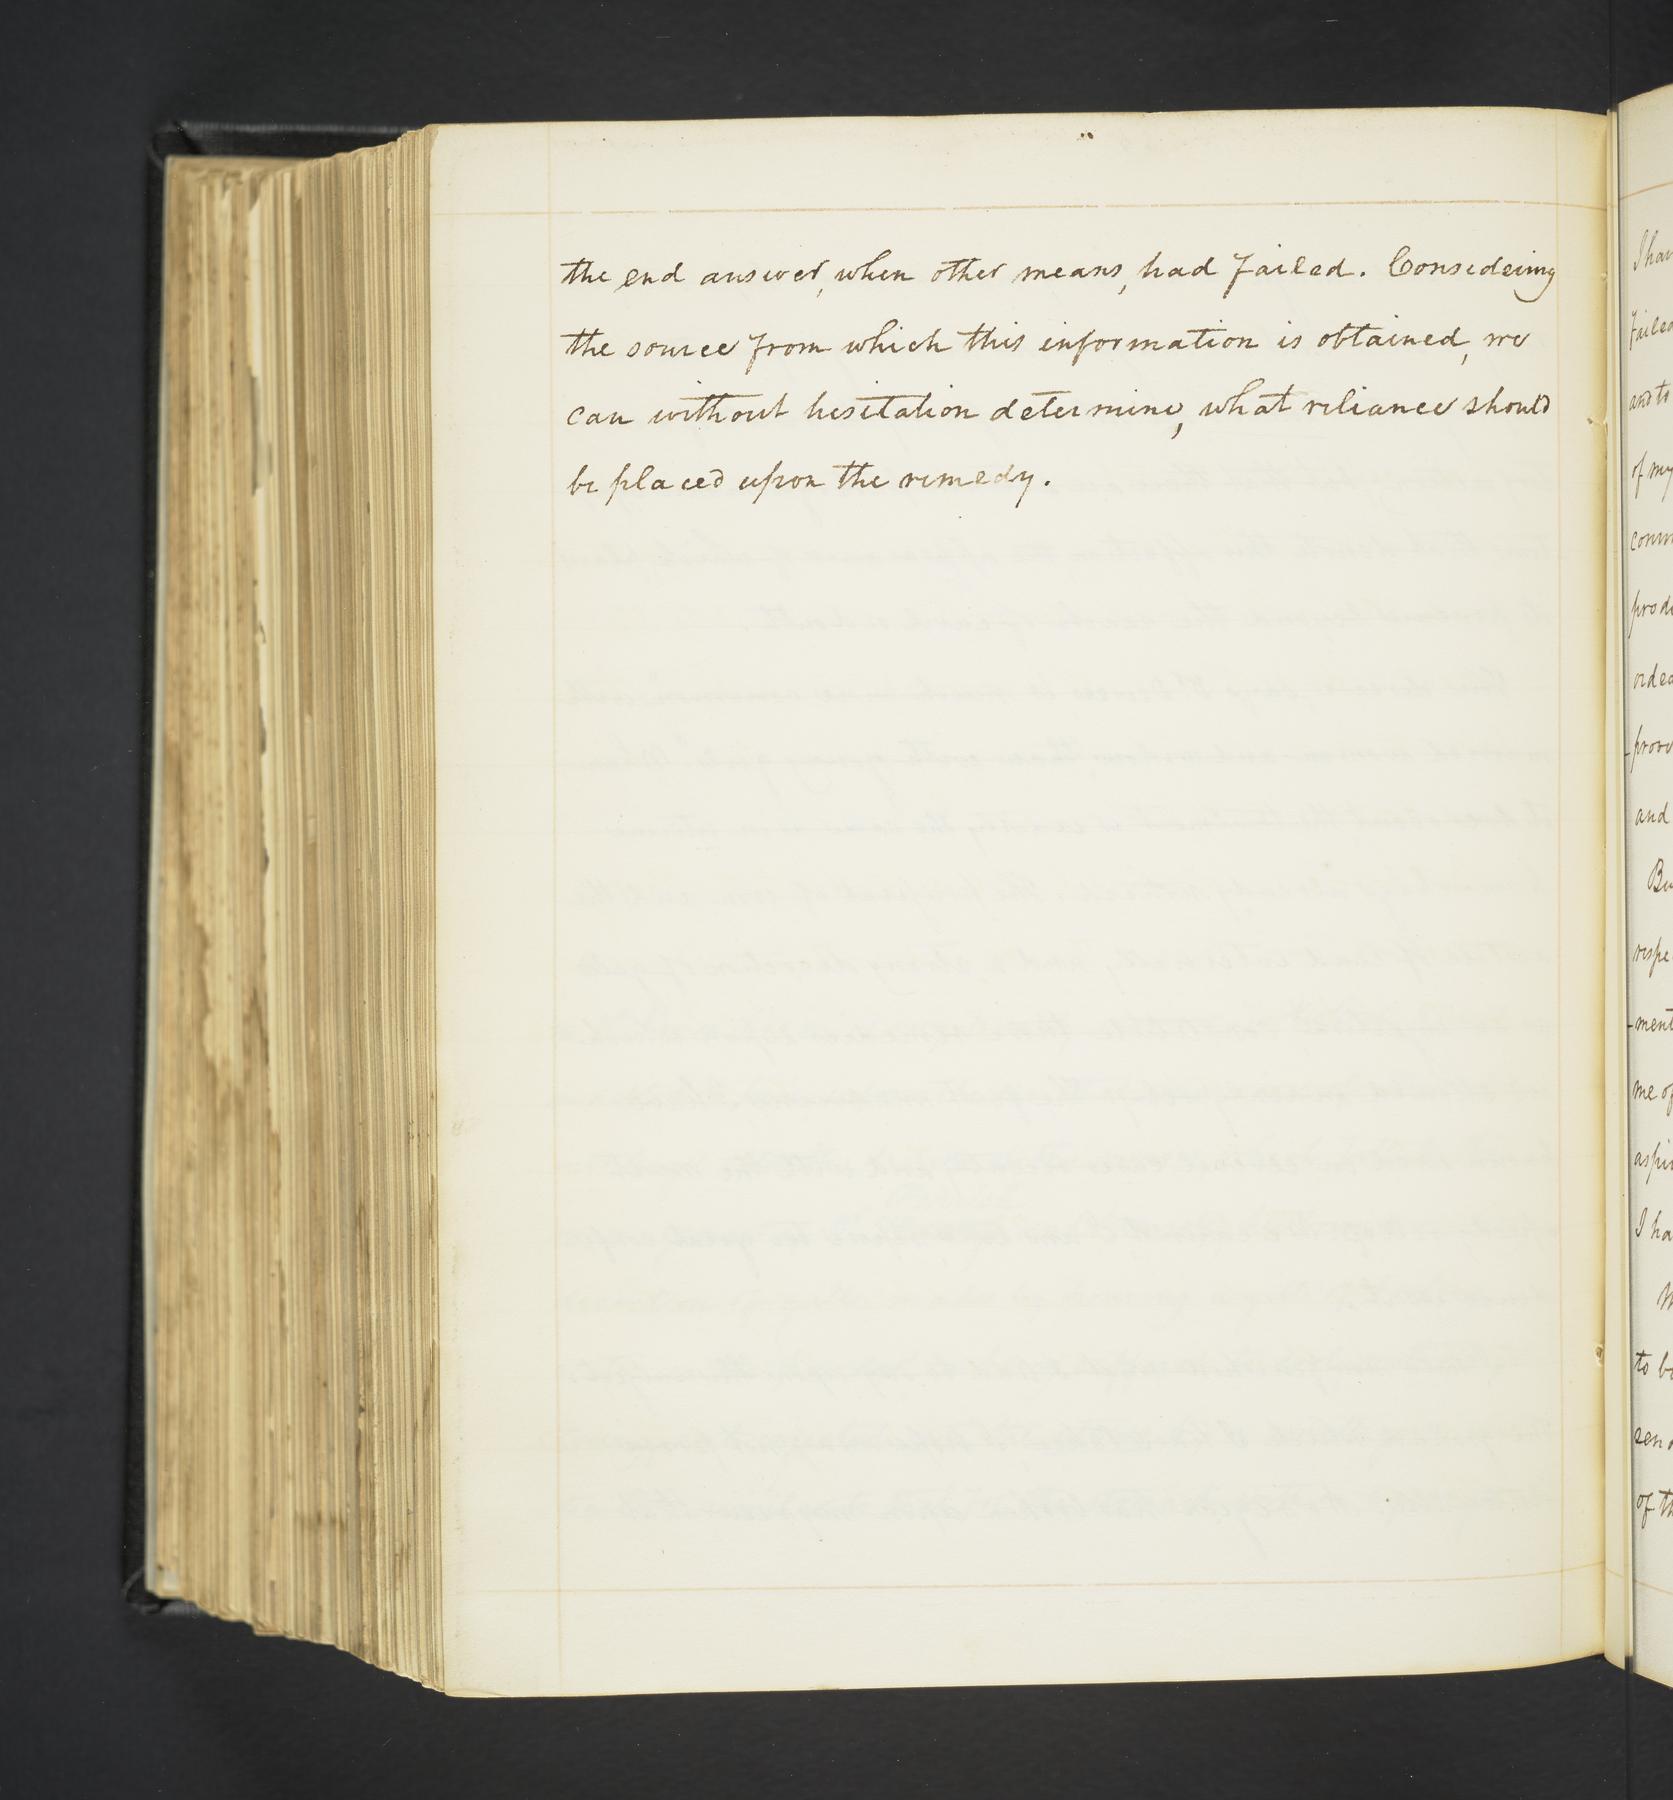 the end answer, when other means, had failed. Consideing
the source from which this information is obtained, we
can without hesitation determine, what reliance should
be placed upon the remedy.
I hav
failed
and to
of my
comm
prod
ordea
prov
and
Bu
respe
-ment
me of
aspi
I ha
to be
rend
of th